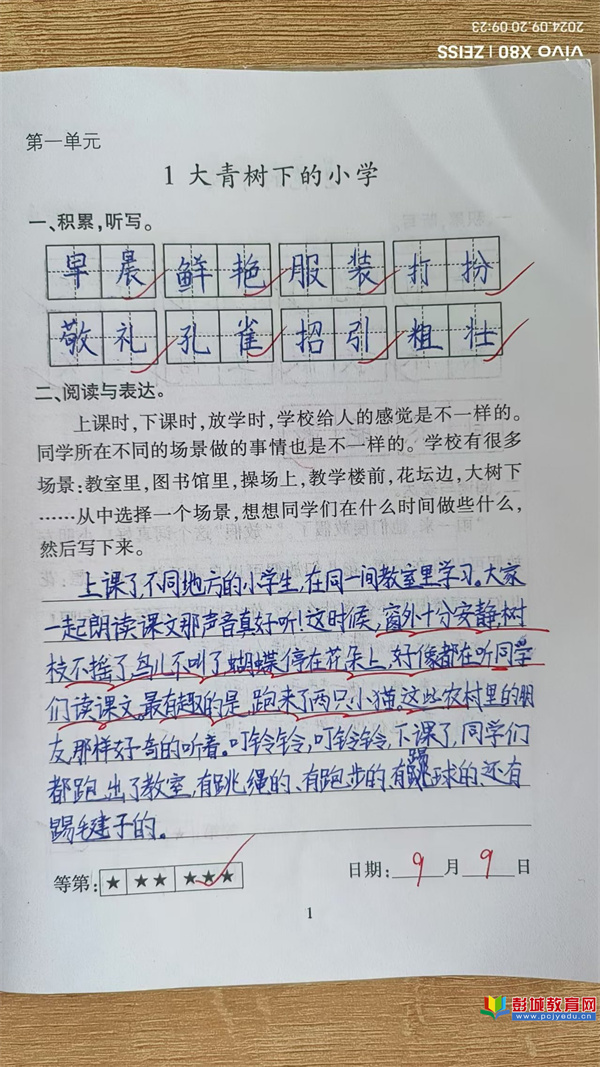 2024.09.20 09:23
vivo X80 | ZEISS
第一单元
1 大青树下的小学
一、积累，听写。
早晨 鲜艳 服装 打扮
敬礼 孔雀 招引 粗壮
二、阅读与表达。
上课时，下课时，放学时，学校给人的感觉是不一样的。
同学所在不同的场景做的事情也是不一样的。学校有很多
场景：教室里，图书馆里，操场上，教学楼前，花坛边，大树下
……从中选择一个场景，想想同学们在什么时间做些什么，
然后写下来。
上课了，不同地方的小学生，在同一间教室里学习。大家
一起朗读课文那声音真好听！这时候，窗外十分安静，树
枝不摇了，鸟儿不叫了，蝴蝶停在花朵上，好像都在听同学
们读课文。最有趣的是，跑来了两只小猫。这些农村里的朋
友，那样好奇的听着。叮铃铃，叮铃铃，下课了，同学们
都跑出了教室，有跳绳的、有跑步的、有踢球的、还有
踢毽子的。
等第：★ ★★ ★★★ 日期：9月9日
1
彭城教育网
www.pcjyedu.cn